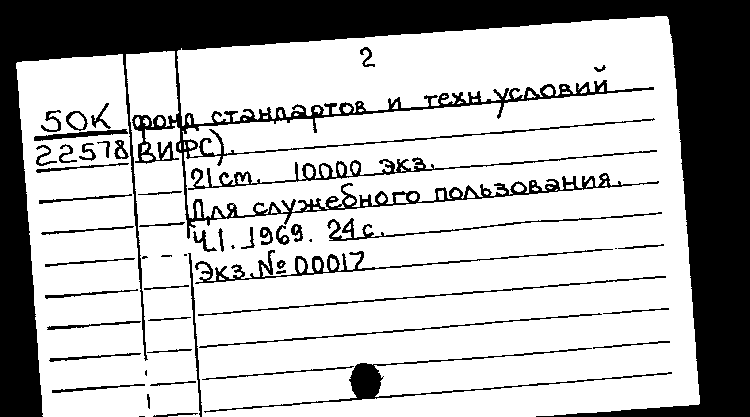 2
50К фонд стандартов и техн. условий
22578 ВИФС).
21 см. 10000 экз.
Для служебного пользования.
Ч.1. 1969. 24 с.
Экз. № 00017